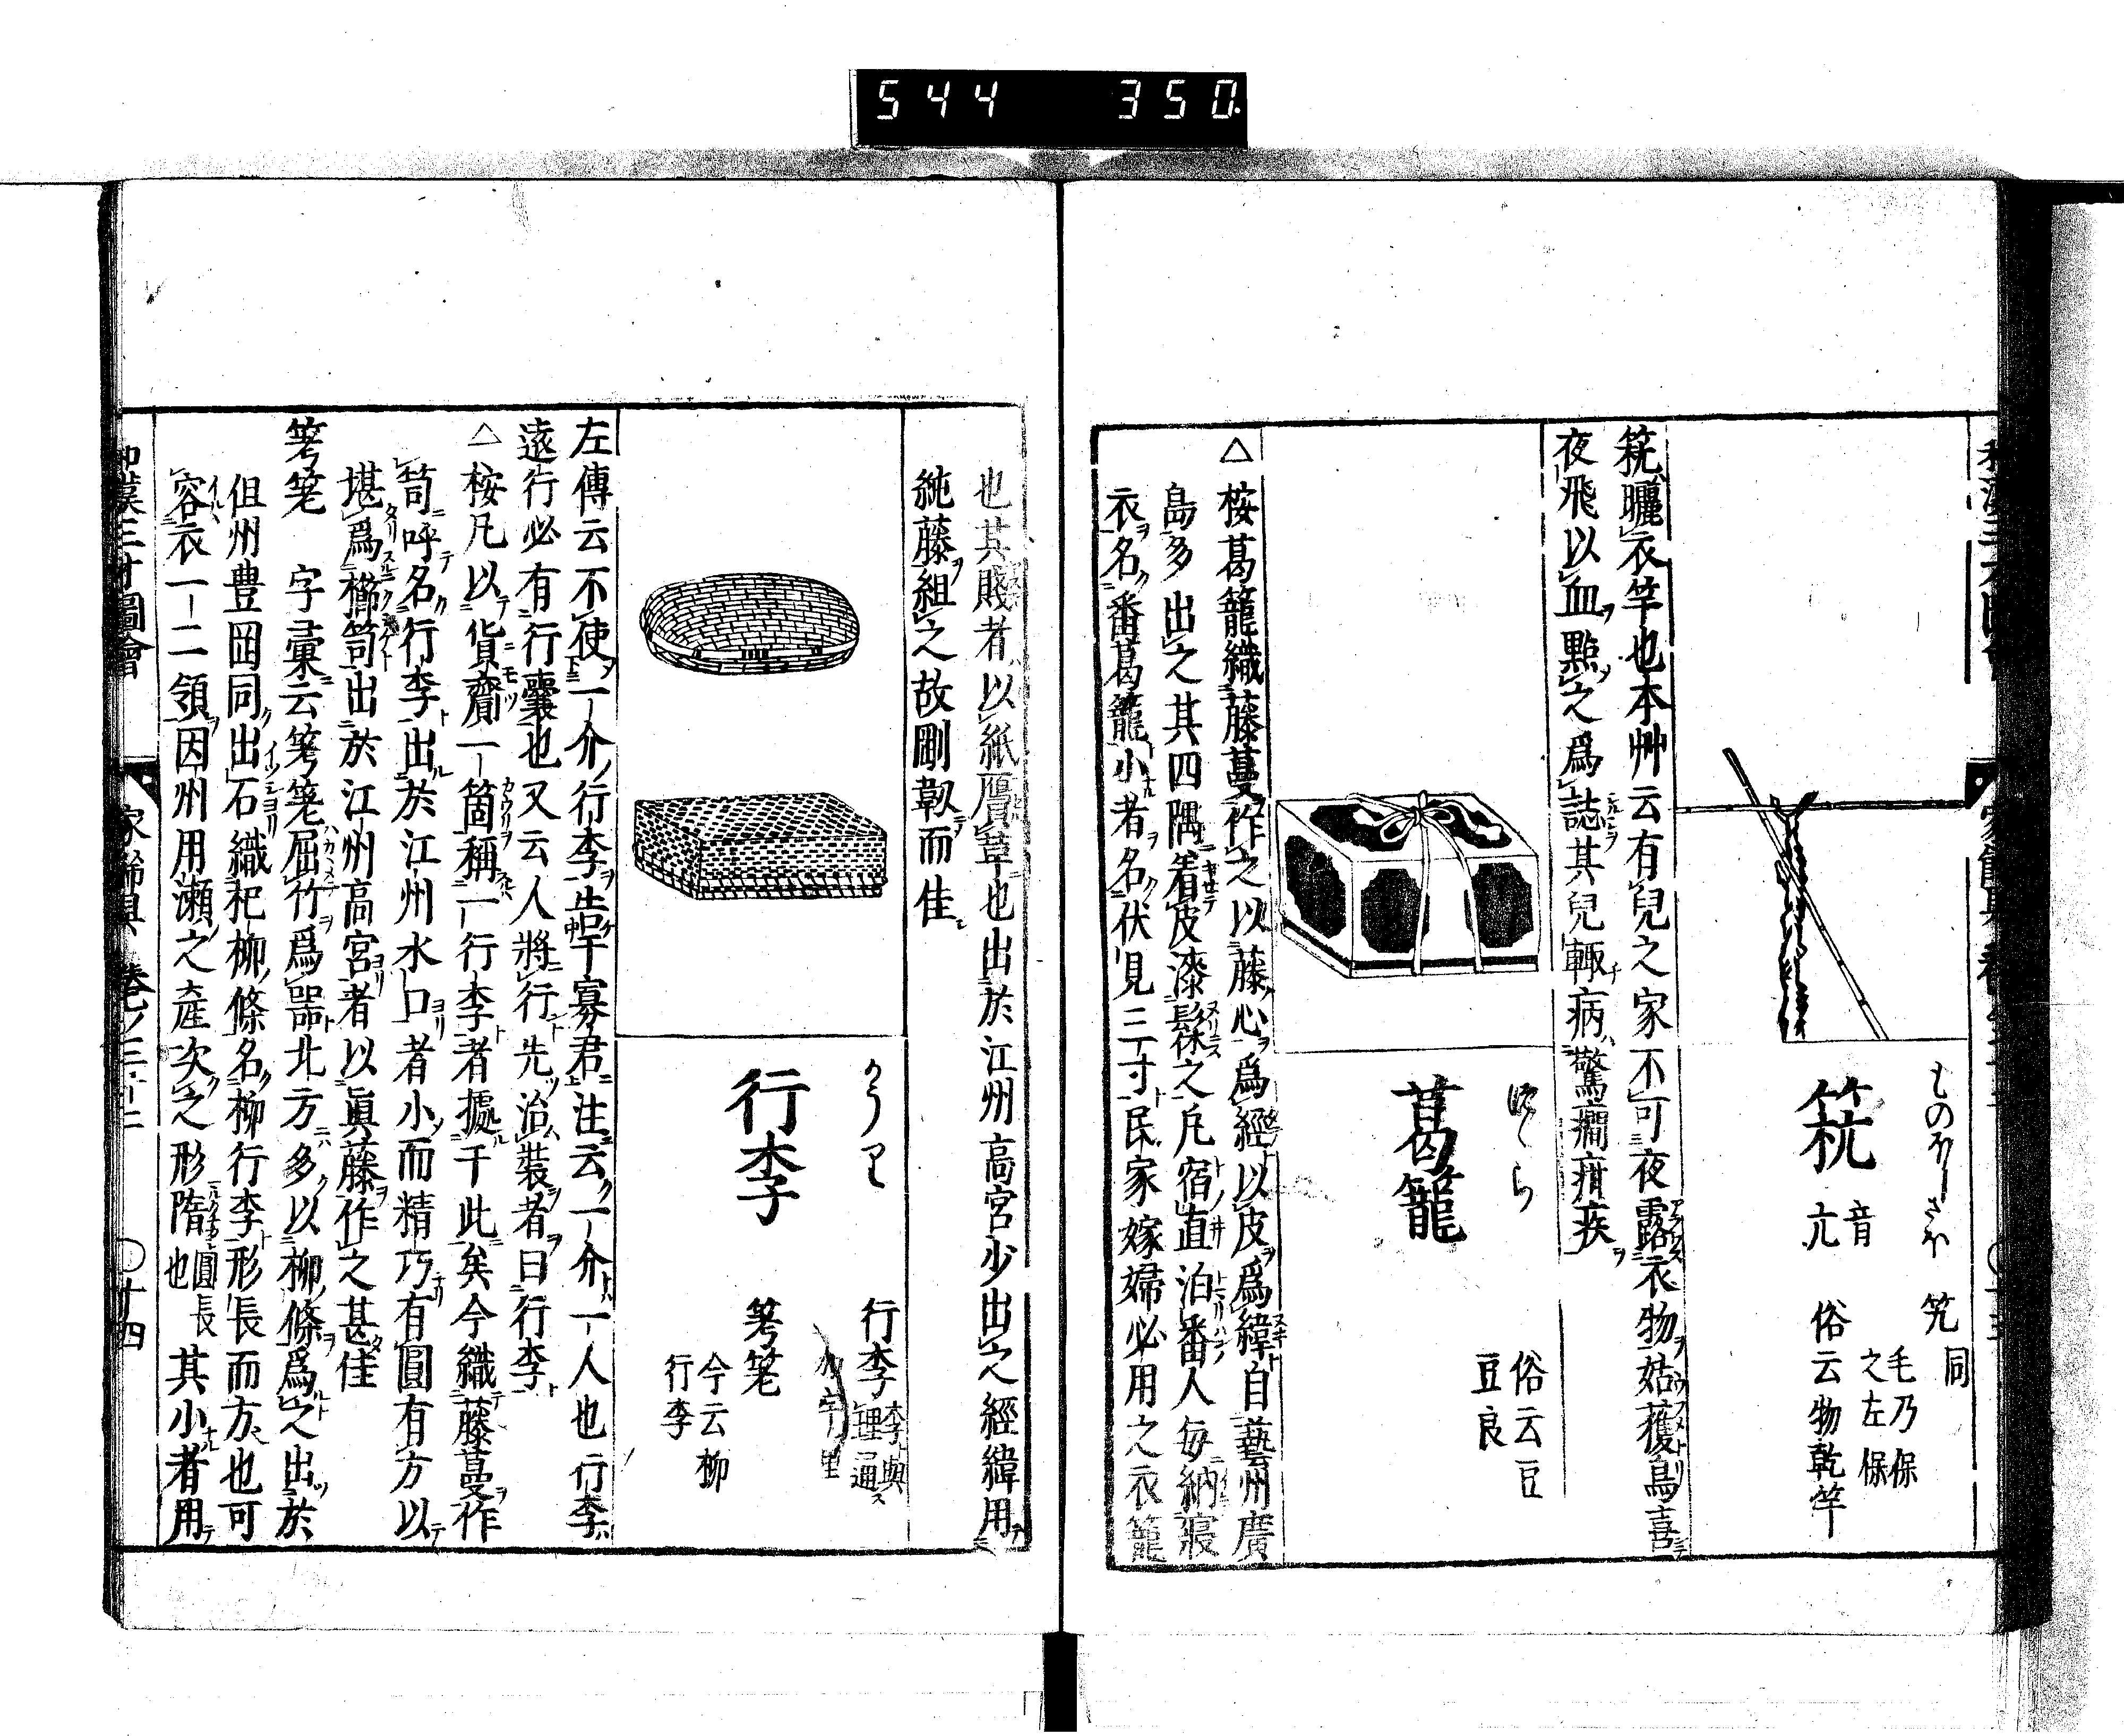 544 350
ものほしさほ
筦 同
毛乃保
之左保
䈷 音
亢
俗云物乾竿
䈷曬衣竿也本艸云有兒之家不可夜露衣物姑獲鳥喜
夜飛以血點之爲誌其兒輙病驚癇疳疾
つゞら
葛籠
俗云豆
豆良
△桉葛籠織藤蔓作之以藤心爲經以皮爲緯自藝州廣
島多出之其四隅着皮漆髹之凡宿直泊番人毎納寢
衣名番葛籠小者名伏見三寸民家嫁婦必用之衣籠
也其賤者以紙贋葦也出於江州高宮少出之經緯用
純藤組之故剛靱而佳
かうり
行李
行李
李與
理通
栲筅
今云柳
行李
左傳云不使一介行李告于寡君注云一介一人也行李
遠行必有行囊也又云人將行先治裝者曰行李
△桉凡以貨齎一箇稱一行李者據于此矣今織藤蔓作
笥呼名行李出於江州水口者小而精巧有圓有方以
堪爲櫛笥出於江州高宮者以眞藤作之甚佳
栲筅 字彙云栲筅屈竹爲噐北方多以柳條爲之出於
但州豊岡同出石織杞柳條名柳行李形長而方也可
容衣一二領因州用瀬之産次之形隋圓長也其小者用
和漢三才圖會 家飾具 卷ノ三十二 ○十四